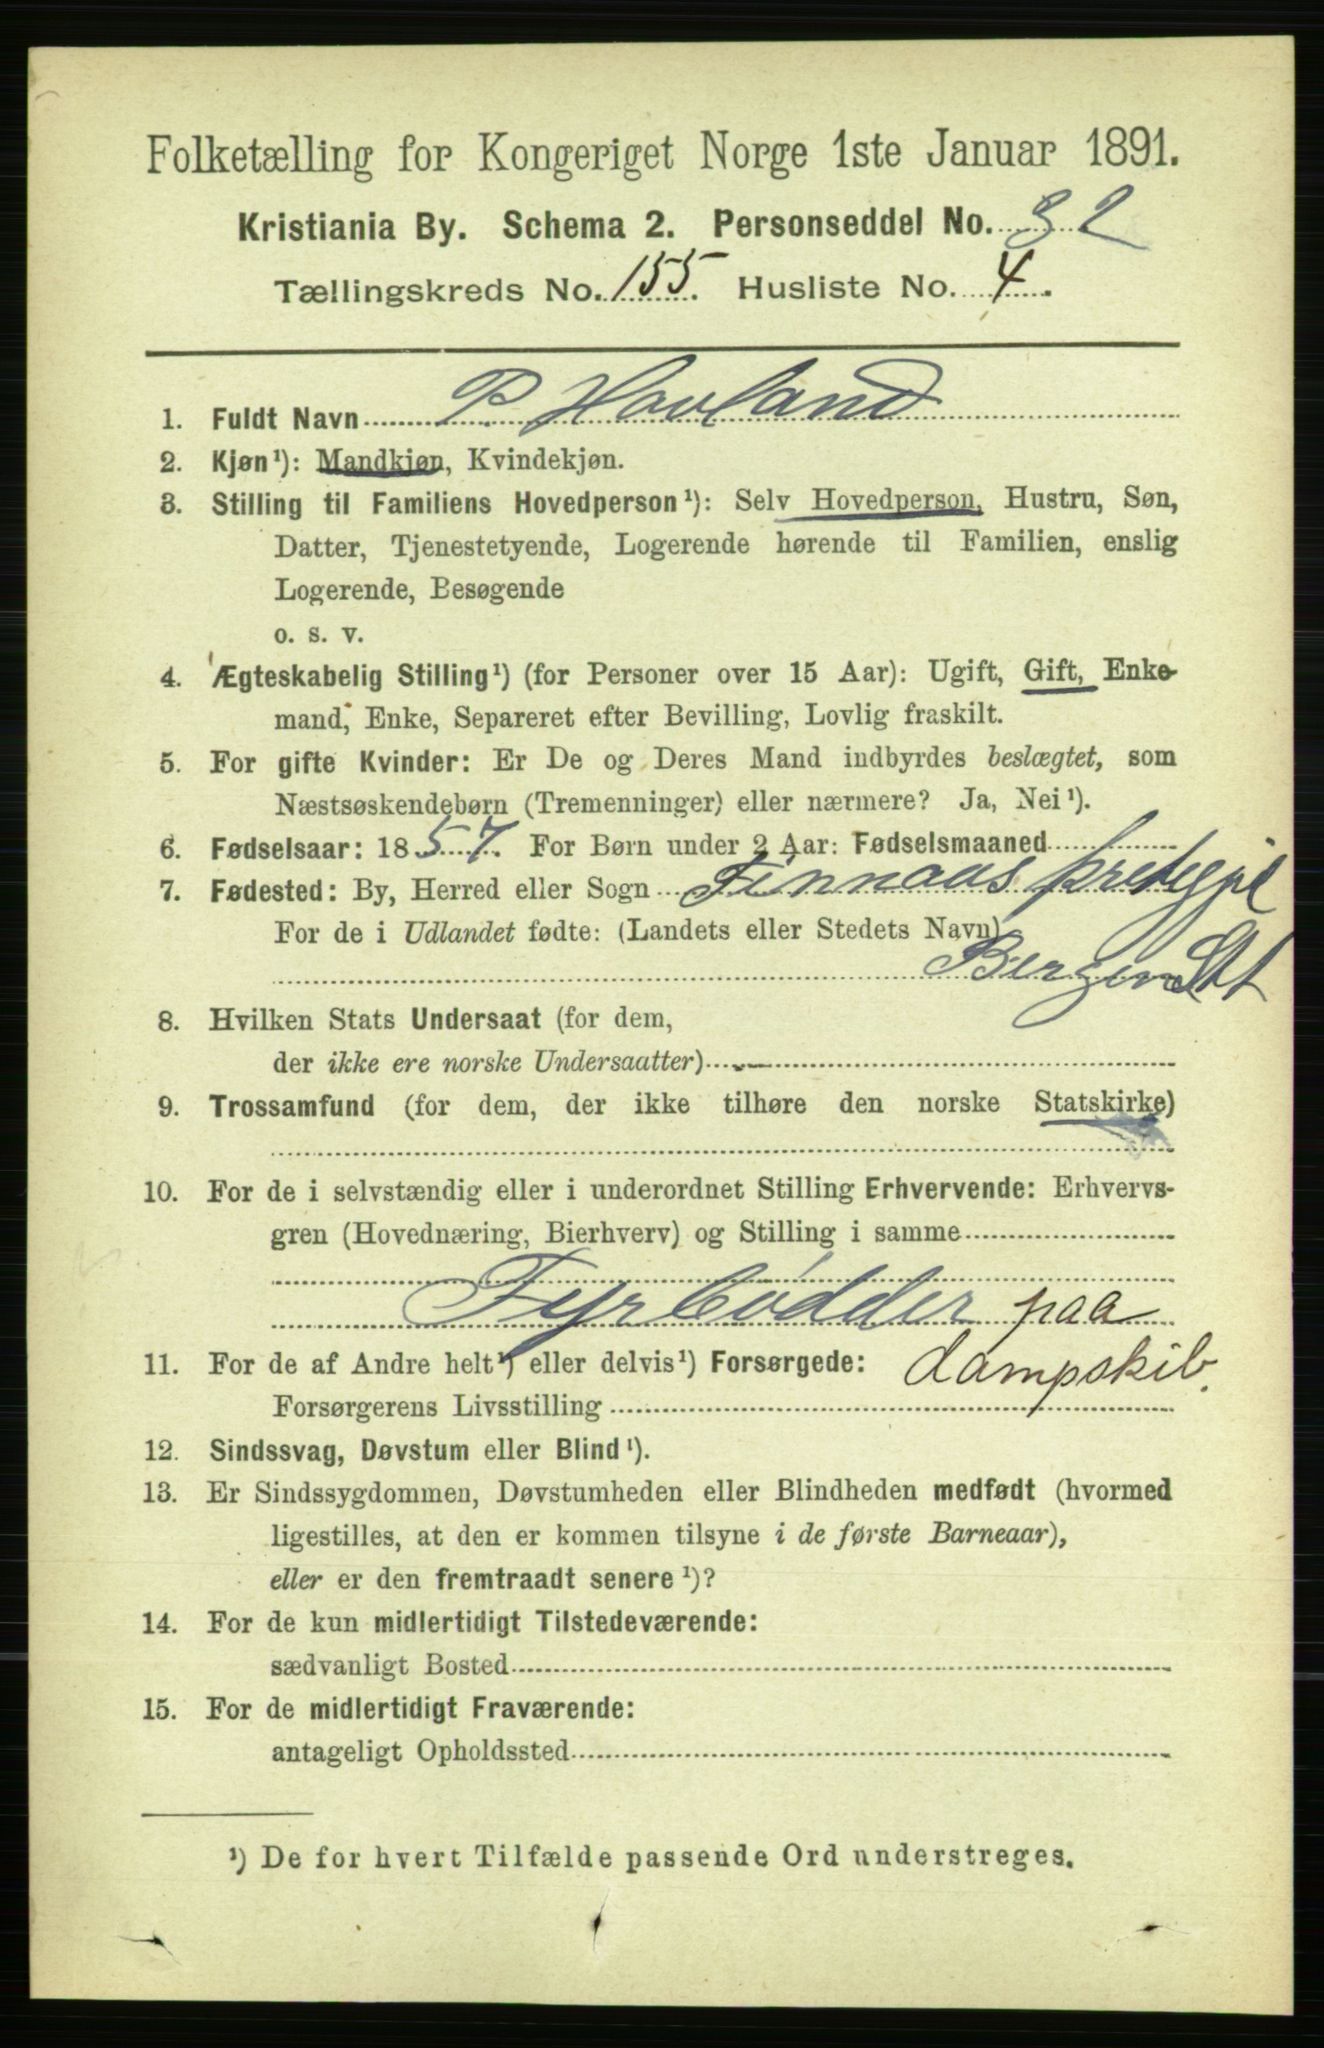 Folketælling for Kongeriget Norge 1ste Januar 1891.
Kristiania By. Schema 2. Personseddel No. 32
Tællingskreds No. 155. Husliste No. 4.
1. Fuldt Navn P. Hovland
2. Kjøn¹): Mandkjøn, Kvindekjøn.
3. Stilling til Familiens Hovedperson¹): Selv Hovedperson, Hustru, Søn,
Datter, Tjenestetyende, Logerende hørende til Familien, enslig
Logerende, Besøgende
o. s. v.
4. Ægteskabelig Stilling¹) (for Personer over 15 Aar): Ugift, Gift, Enke-
mand, Enke, Separeret efter Bevilling, Lovlig fraskilt.
5. For gifte Kvinder: Er De og Deres Mand indbyrdes beslægtet, som
Næstsøskendebørn (Tremenninger) eller nærmere? Ja, Nei¹).
6. Fødselsaar: 1857. For Børn under 2 Aar: Fødselsmaaned
7. Fødested: By, Herred eller Sogn Finnaas
For de i Udlandet fødte: (Landets eller Stedets Navn)
Bergen Stt
8. Hvilken Stats Undersaat (for dem,
der ikke ere norske Undersaatter)
9. Trossamfund (for dem, der ikke tilhøre den norske Statskirke)
10. For de i selvstændig eller i underordnet Stilling Erhvervende: Erhvervs-
gren (Hovednæring, Bierhverv) og Stilling i samme
Fyrbødder paa
11. For de af Andre helt¹) eller delvis¹) Forsørgede: dampskib.
Forsørgerens Livsstilling
12. Sindssvag, Døvstum eller Blind¹).
13. Er Sindssygdommen, Døvstumheden eller Blindheden medfødt (hvormed
ligestilles, at den er kommen tilsyne i de første Barneaar),
eller er den fremtraadt senere¹)?
14. For de kun midlertidigt Tilstedeværende:
sædvanligt Bosted
15. For de midlertidigt Fraværende:
antageligt Opholdssted
¹) De for hvert Tilfælde passende Ord understreges.